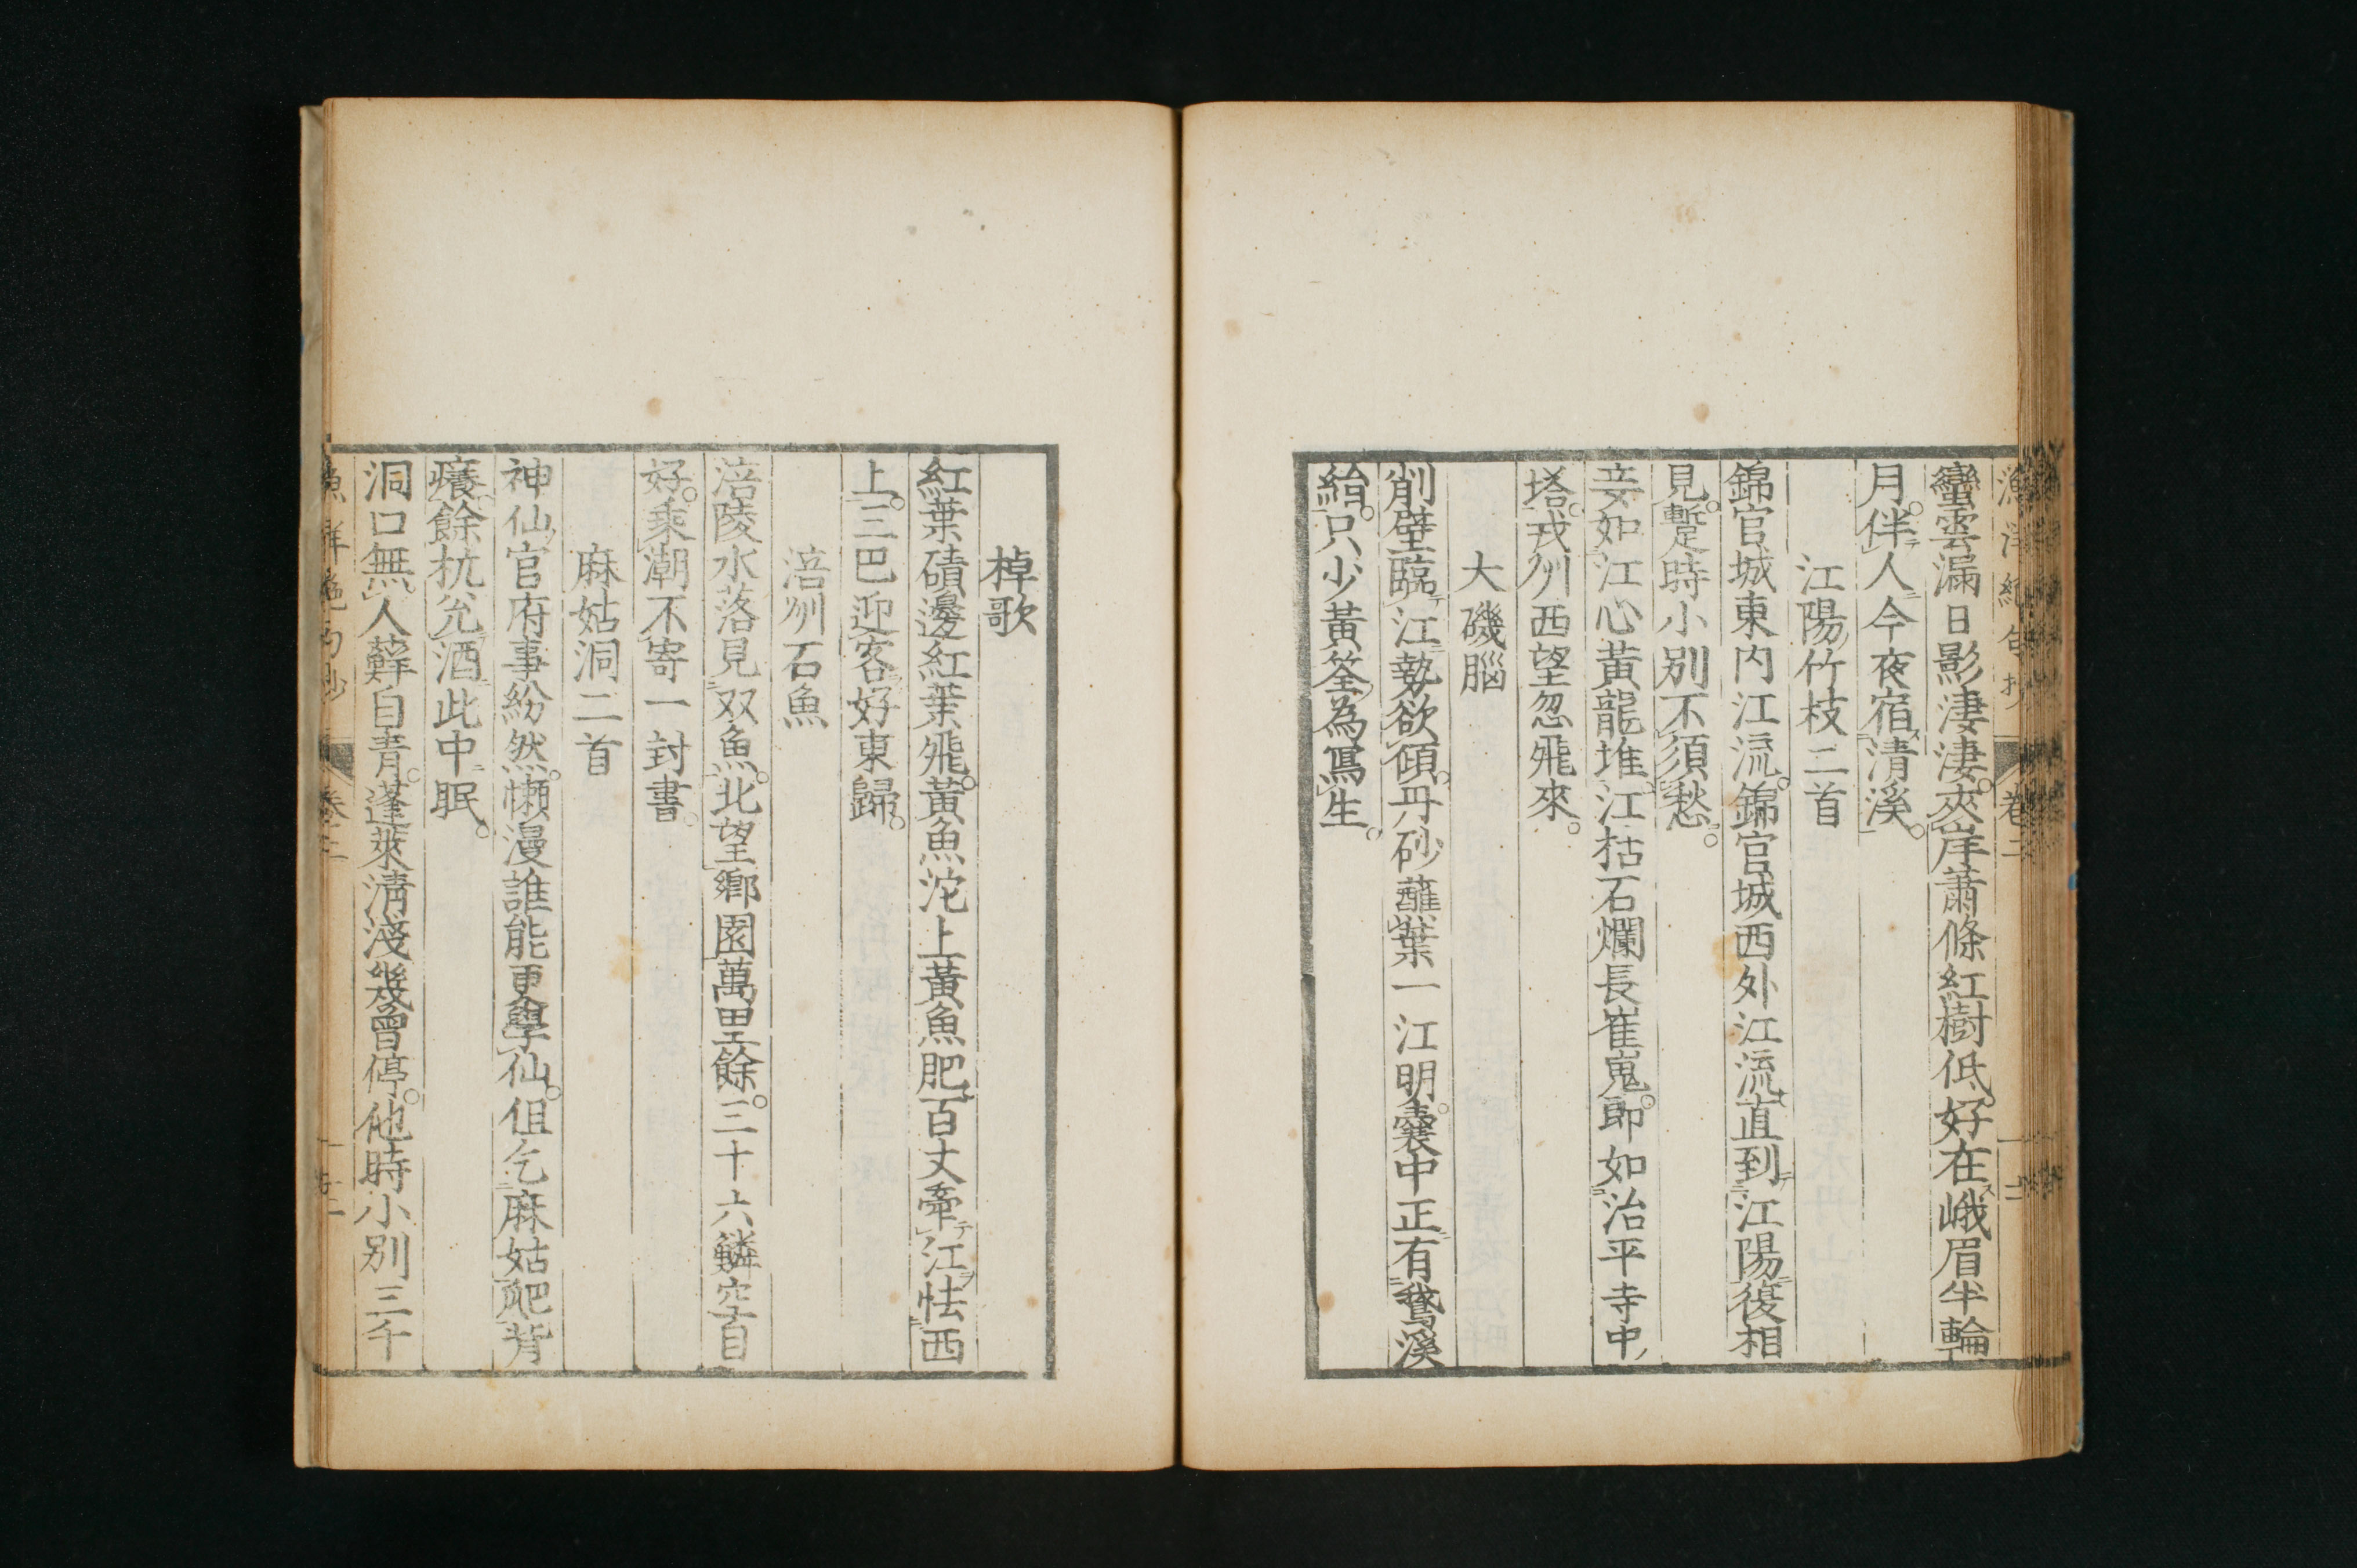 漁洋絶句抄 卷二
蠻雲漏日影淒淒。夾岸蕭條紅樹低。好在峨眉半輪
月。伴人今夜宿清溪。
江陽竹枝二首
錦官城東内江流。錦官城西外江流。直到江陽復相
見。蹔時小別不須愁。
妾如江心黃龍堆。江枯石爛長崔嵬。郎如治平寺中
塔。戎州西望忽飛來。
大磯腦
削壁臨江勢欲傾。丹砂蘸葉一江明。囊中正有鵞溪
絹。只少黃筌為寫生。
棹歌
紅葉磧邊紅葉飛。黃魚沱上黃魚肥。百丈牽江怯西
上。三巴迎客好東歸。
涪州石魚
涪陵水落見双魚。北望鄉園萬里餘。三十六鱗空自
好。乘潮不寄一封書。
麻姑洞二首
神仙官府事紛然。懶漫誰能更學仙。但乞麻姑爬背
癢。餘杭兊酒此中眠。
洞口無人蘚自青。蓬萊清淺幾曾停。他時小別三千
漁洋絶句抄 卷二